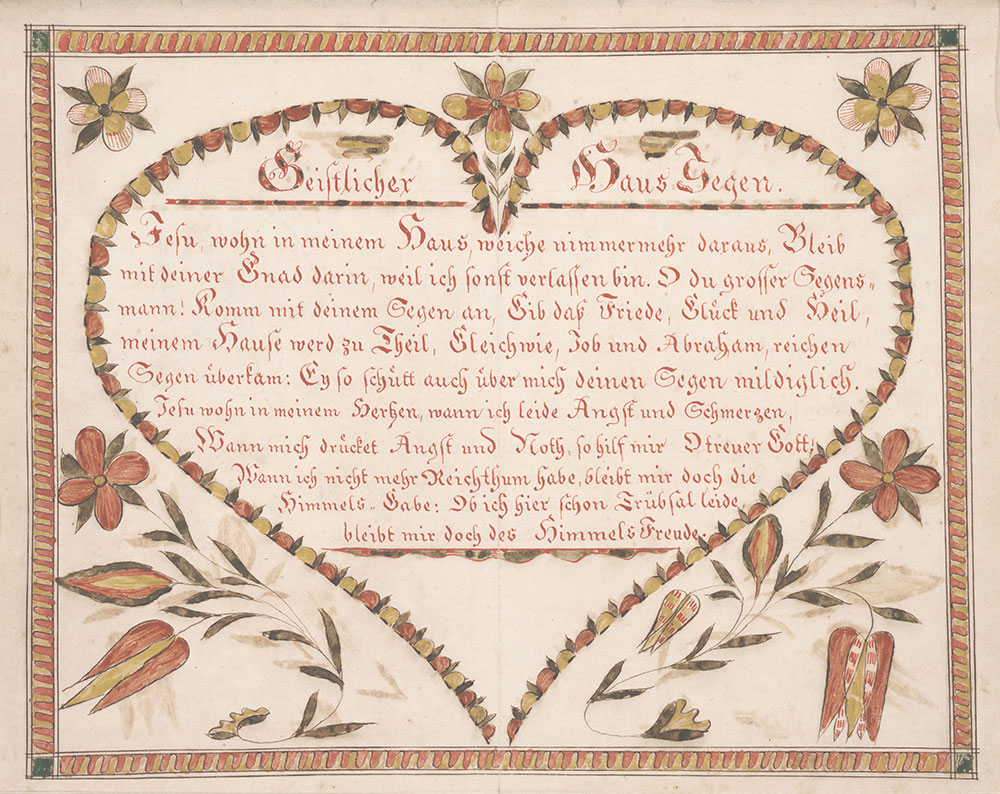 Geistlicher Haus-Segen.
Jesu, wohn in meinem Haus, weiche nimmermehr daraus, Bleib
mit deiner Gnad darin, weil ich sonst verlassen bin. O du grosser Segens=
mann! Komm mit deinem Segen an, Gib daß Friede, Glück und Heil,
meinem Hause werd zu Theil, Gleichwie, Job und Abraham, reichen
Segen überkam: Ey so schütt auch über mich deinen Segen mildiglich.
Jesu wohn in meinem Hertzen, wann ich leide Angst und Schmerzen,
Wann mich drücket Angst und Noth, so hilf mir O treuer Gott!
Wann ich nicht mehr Reichthum habe, bleibt mir doch die
Himmels=Gabe: Ob ich hier schon Trübsal leide,
bleibt mir doch des Himmels Freude.